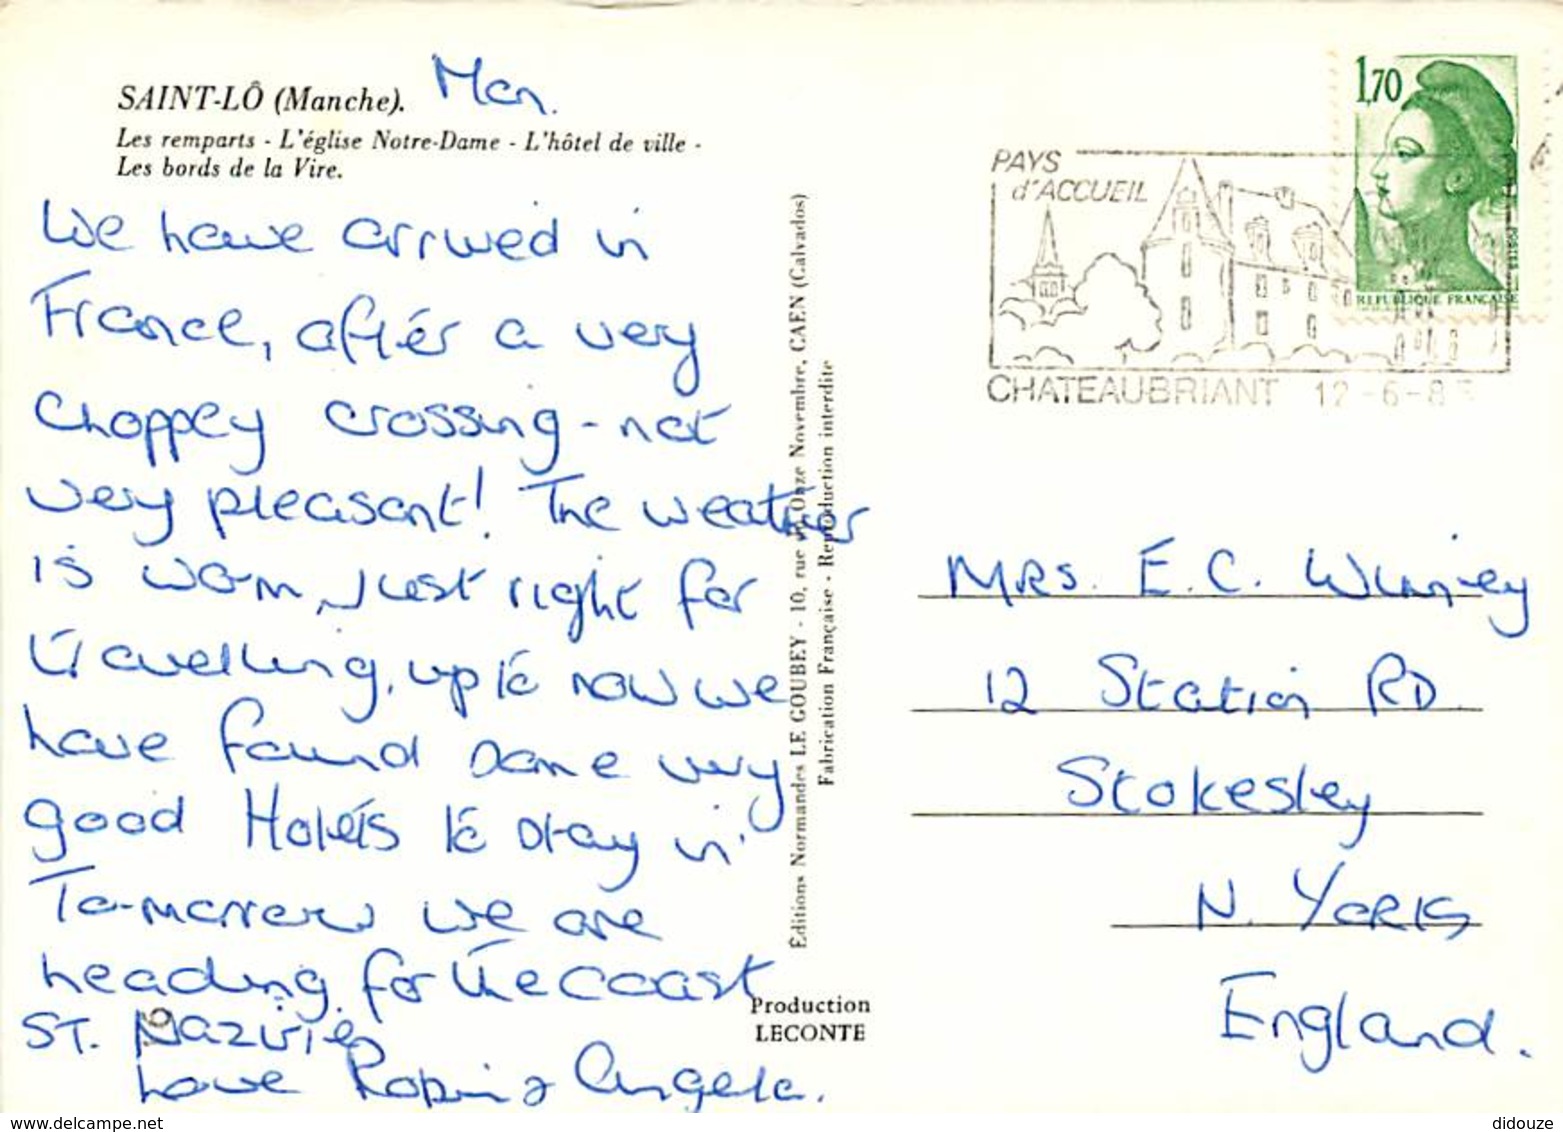 SAINT-LÔ (Manche). Mon.
Les remparts - L'église Notre-Dame - L'hôtel de ville -
Les bords de la Vire.
We have arrived in
France, after a very
choppey crossing - not
very pleasant! The weather
is warm, just right for
travelling, up to now we
have found some very
good Hotels to stay in.
To-morrow we are
heading for the coast
ST.
Love Robin & Angela.
Editions Normandes LE GOUBEY - 10, rue du Onze Novembre, CAEN (Calvados)
Fabrication Française - Reproduction interdite
Production
LECONTE
PAYS
d'ACCUEIL
CHATEAUBRIANT 12-6-8
1,70
POSTES
REPUBLIQUE FRANÇAISE
MRS. E.C.
12 Station RD
Stokesley
N. YORKS
England.
delcampe.net
didouze